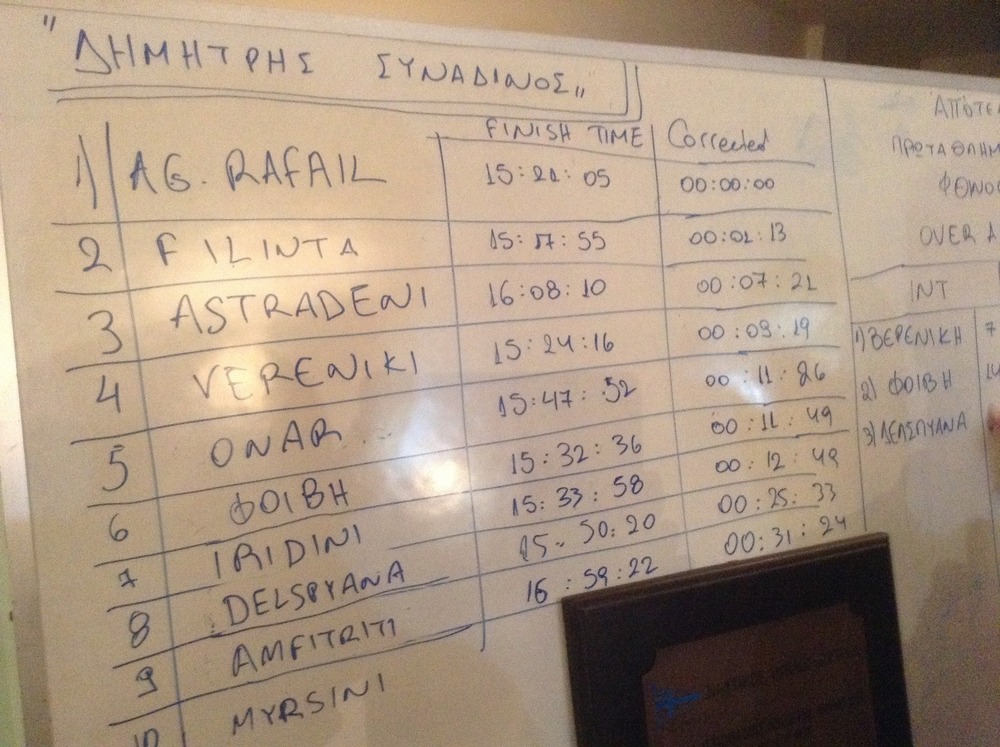 "ΔΗΜΗΤΡΗΣ ΣΥΝΑΔΙΝΟΣ"
FINISH TIME Corrected
1) AG. RAFAIL 15:21:05 00:00:00
2 FILINTA 15:17:55 00:01:13
3 ASTRADENI 16:08:10 00:07:21
4 VERENIKI 15:24:16 00:09:19
5 ONAR 15:47:52 00:11:26
6 ΦΟΙΒΗ 15:32:36 00:11:49
7 IRIDINI 15:33:58 00:12:49
8 DELSPYANA 15:50:20 00:25:33
9 AMFITRITI 16:59:22 00:31:24
10 MYRSINI
ΑΠΟΤΕΛ
ΠΡΩΤΑΘΛΗΜ
ΦΘΙΝΟΠ
OVER A
INT
1) ΒΕΡΕΝΙΚΗ 7
2) ΦΟΙΒΗ
3) ΔΕΛΣΠΥΑΝΑ